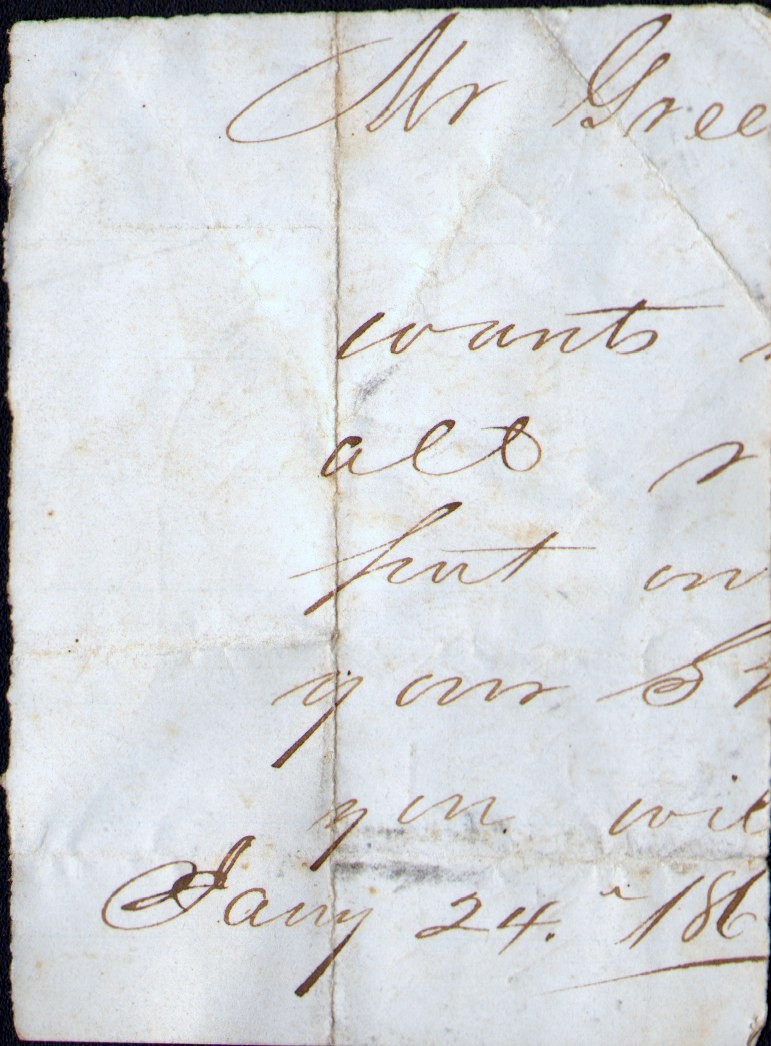 Mr Gree
wants
all
put on
your
you wil
Jany 24. 186